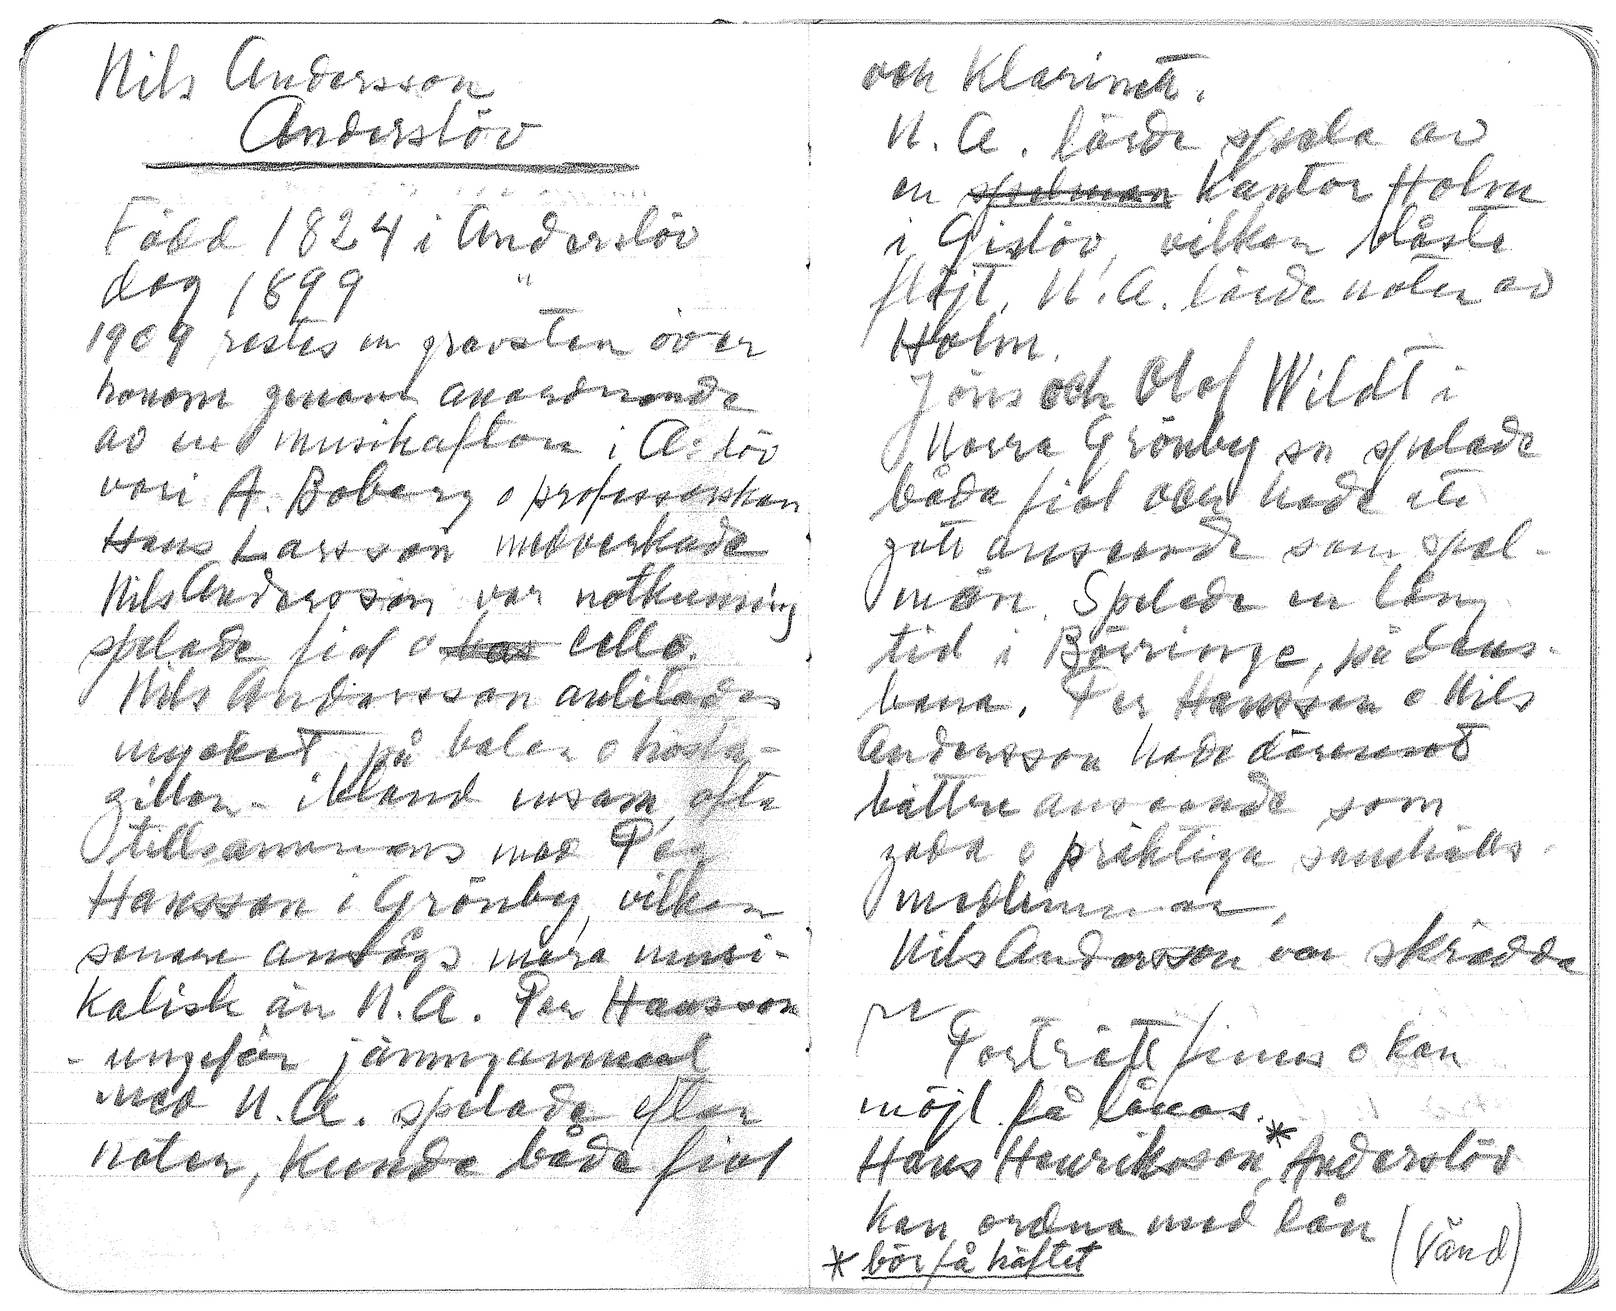 Nils Andersson
Anderslöv
Född 1824 i Anderslöv
dog 1899 "
1909 restes en gravsten över
honom genom anordnande
av en musikafton i A:löv
vari A. Boberg o professorskan
Hans Larsson medverkade
Nils Andersson var notkunnig
spelade fiol o bas cello.
Nils Andersson anlitades
mycket på baler o höst-
gillen - ibland ensam, ofta
tillsammans med Per
Hansson i Grönby, vilken
senare ansågs mera musi-
kalisk än N.A. Per Hansson
- ungefär jämngammal
med N.A. spelade efter
noter, kunde både fiol
och klarinett.
N.A. lärde spela av
en spelman Kantor Holm
i Gislöv, vilken blåste
flöjt. N.A. lärde noter av
Holm.
Jöns och Olof Wildt i
Norra Grönby sn spelade
båda fiol och hade ett
gott anseende som spel-
män. Spelade en lång
tid i Börringe, på dans-
bana. Per Hansson o Nils
Andersson hade däremot
bättre anseende som
goda o präktiga samhälls-
medlemmar.
Nils Andersson var skrädda
Porträtt finnes o kan
möjl. få lånas.
Hans Henrikson*, Anderslöv
kan ordna med lån
(Vänd)
* bör få häftet